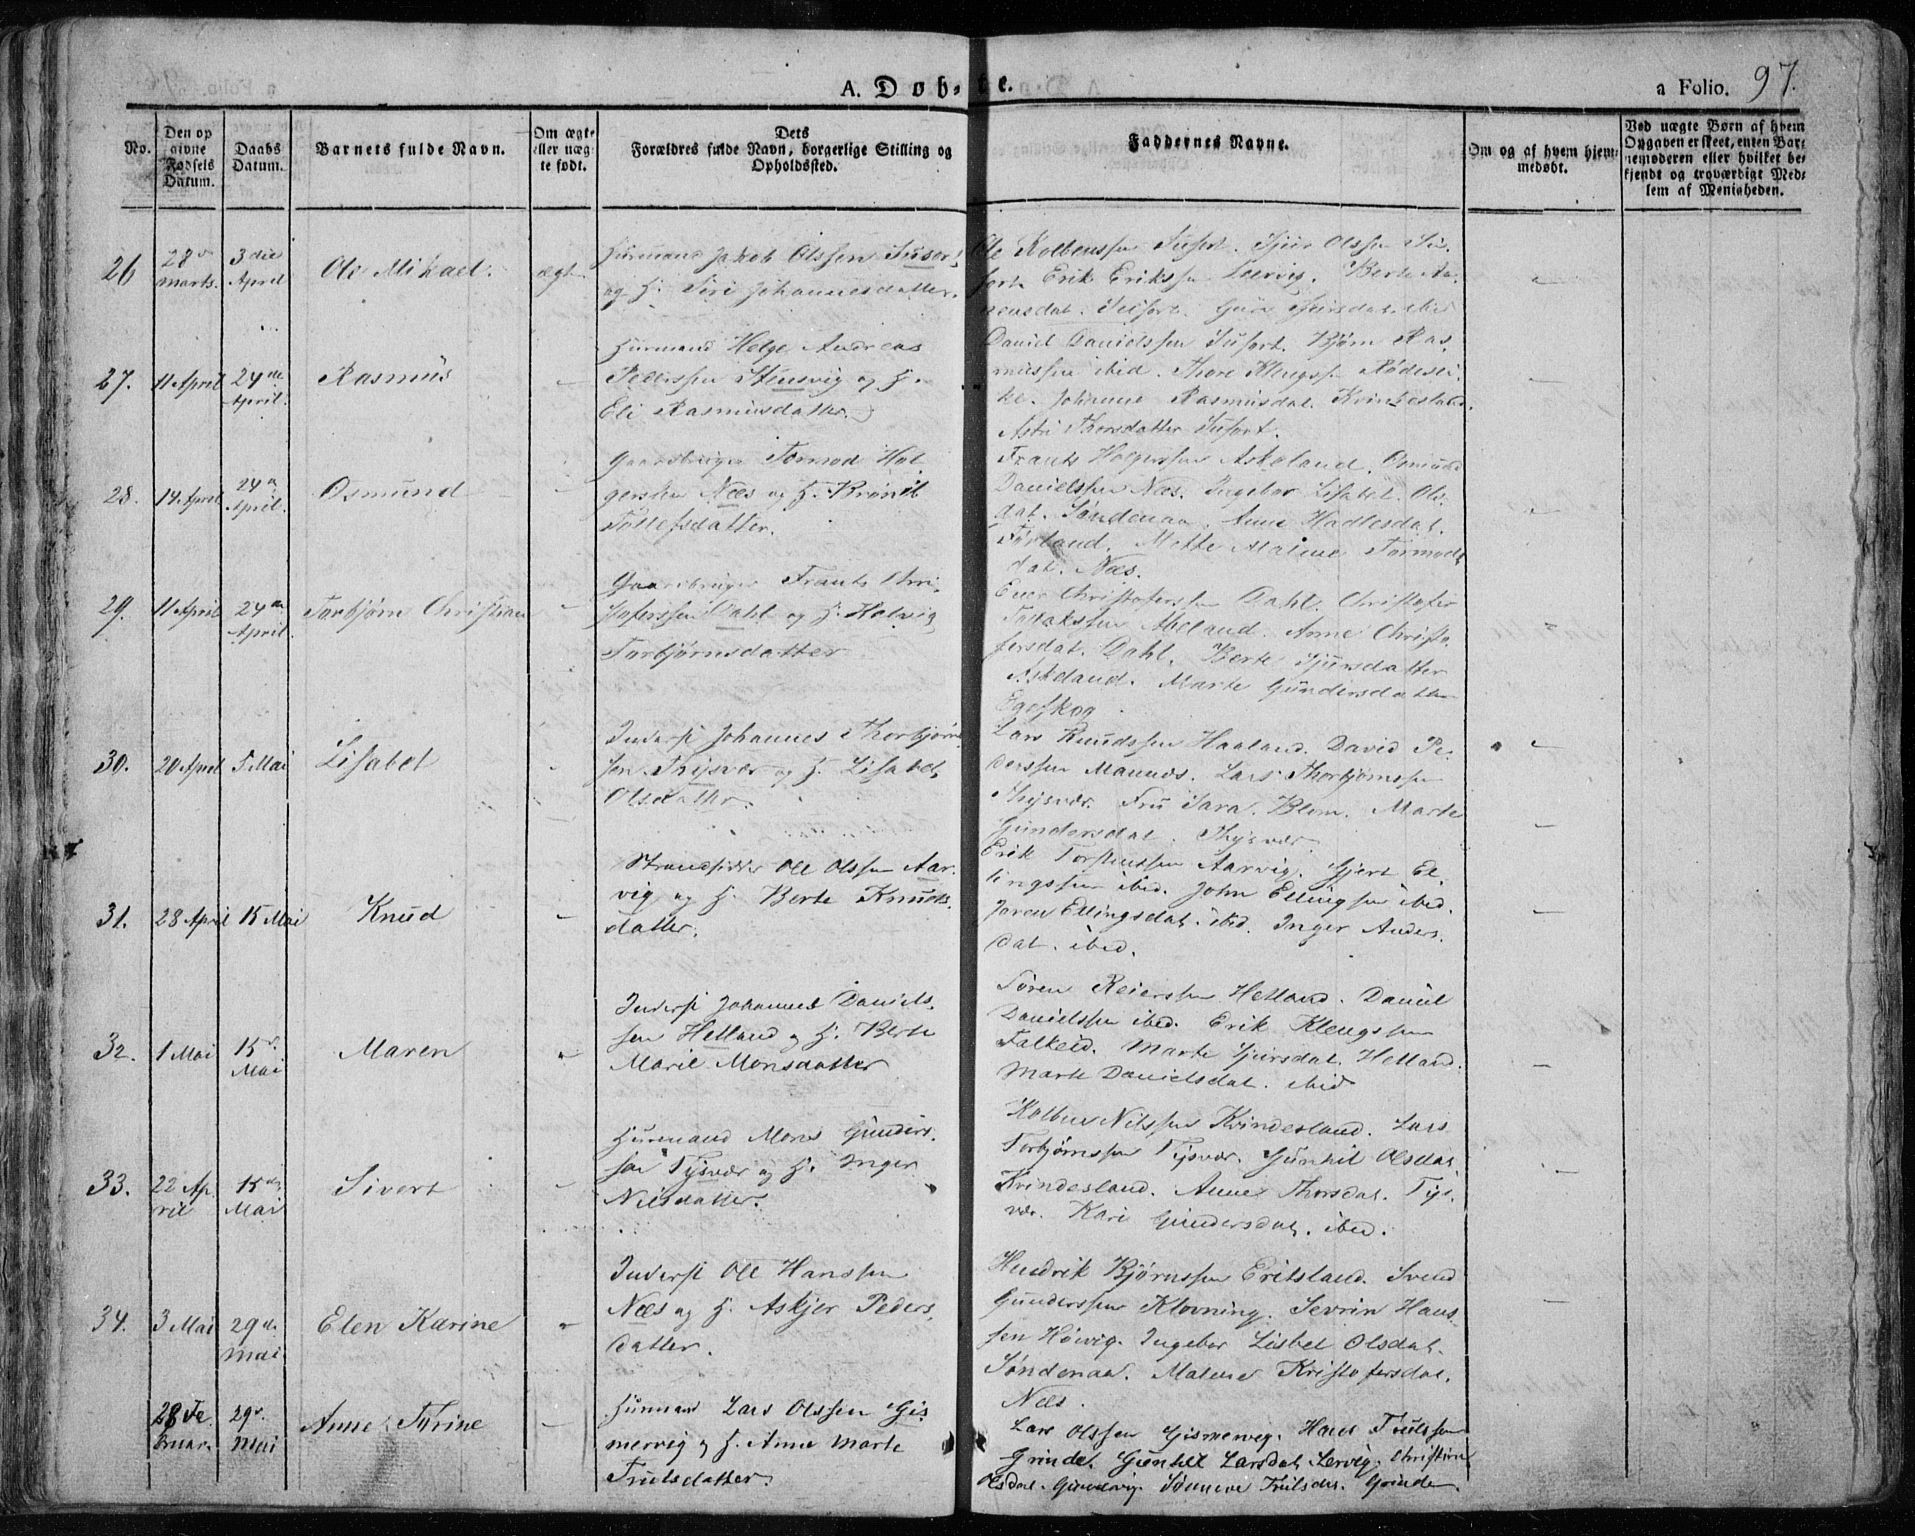 A. Døb- te.
a Folio. 97.
No.
Den op
givne
Fødsels
Datum.
Daabs
Datum.
Barnets fulde Navn.
Om ægte
eller uæg-
te født.
Dets
Forældres fulde Navn, borgerlige Stilling og
Opholdssted.
Faddernes Navne.
Om og af hvem hjem-
medøbt.
Ved uægte Børn af hvem
Opgaven er skeet, enten Bar-
nemoderen eller hvilket be-
kjendt og troværdigt Med-
lem af Menigheden.
26
28
Marts.
3die
April
Ole Mikael.
ægt.
Huusmand Jakob Olssen
og H. Siri Johannesdatter.
Ole Kolbenssen Susort. Sjur Olssen Su-
sort. Erik Erikssen Leervig. Berte
dat. Susort. Guro Sjursdat. ibid
27.
11 April
24de
April.
Rasmus
Huusmand Helge Andreas
Pederssen Stensvig og H.
Eli Rasmusdatter.
David Danielssen Susort. Bjørn Ras-
mussen ibid. Thore Klengss.
Johanne Rasmusdat. Kvindesland.
Astri Thorsdatter Susort.
28.
14 April
24de
April.
Osmund
Gaardbruger Tormod Hol-
gerssen Næs og H. Brønil
Tollefsdatter.
Frants Holgerssen Askeland. Osmund
Danielssen Næs. Ingebor Lisabet Ols-
dat. Søndenaa. Anne Hadlesdat.
Førland. Mette Malene Tormods
dat. Næs.
29.
11 April
24de
April.
Torbjørn Christian
Gaardbruger Frants Chri-
stoferssen Dahl og H. Helvig
Torbjørnsdatter
Christoferssen Dahl. Christofer
Tollakssen Aheland. Anne Christo-
fersdat. Dahl. Berte Sjursdatter
Askeland. Marte Gundersdatter
Egeskog.
30.
20 April
5 Mai
Lisabet
Inderst Johannes Thorbjørn-
sen Thysvær og H. Lisabet
Olsdatter.
Lars Knudssen Haaland. David Pe-
derssen Mannes. Lars Thorbjørnssen
Thysvær. Fru Sara Blom. Marte
Gundersdat. Thysvær.
31.
28 April
15 Mai
Knud
Strandsidder Ole Olssen Aar-
vig og H. Berte Knuds-
datter.
Erik Torstenssen Aarvig. Gjert El-
lingssen ibid. John Ellingssen ibid.
Joren Ellingsdat. ibid. Inger Anders-
dat. ibid.
32.
1 Mai
15de
Mai
Maren
Inderst Johannes Daniels-
sen Hetland og H. Berte
Marie Monsdatter
Søren Reierssen Hetland. Daniel
Danielssen ibid. Erik Klengssen
Falkeid. Marte Sjursdat. Hetland.
Marte Danielsdat. ibid
33.
22 Ap
ril
15de
Mai
Sivert
Huusmand Mons Gunders-
sen Tysvær og H. Inger
Nilsdatter.
Kolben Nilssen Kvindesland. Lars
Torbjørnssen Tysvær. Gunhil Olsdat.
Kvindesland. Anne Thorsdat. Tys-
vær. Kari Gundersdat. ibid.
34.
3 Mai
29de
Mai
Elen Karine
Inderst Ole Hanssen
Næs og H. Askjer Peders-
datter.
Hendrik Bjørnssen Eriksland. Svend
Gunderssen Klovning. Sevrin Hans-
sen Høivig. Ingebor Lisbet Olsdat.
Søndenaa. Malene Kristofersdat.
Næs.
28 Fe
bruar.
29de
Mai
Anne Torine
Huusmand Lars Olssen Gis-
mervig og H. Anne Marte
Trulsdatter.
Lars Olssen Gismervig. Hans Trulssen
Grinde. Gunhil Larsdat. Lervig. Christine
Olsdat. Sønneve Trulsdat. Grinde.